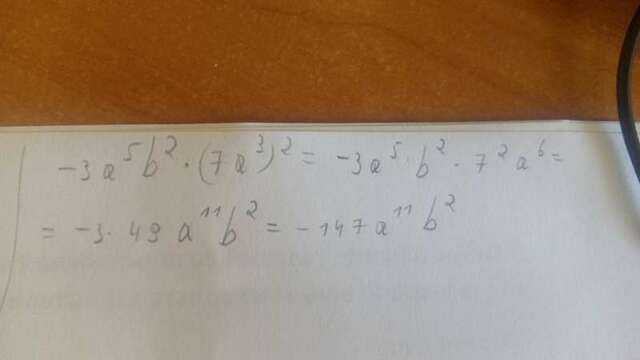 -3a⁵b²·(7a³)² = -3a⁵·b²·7²a⁶ =
= -3·49 a¹¹b² = -147a¹¹b²